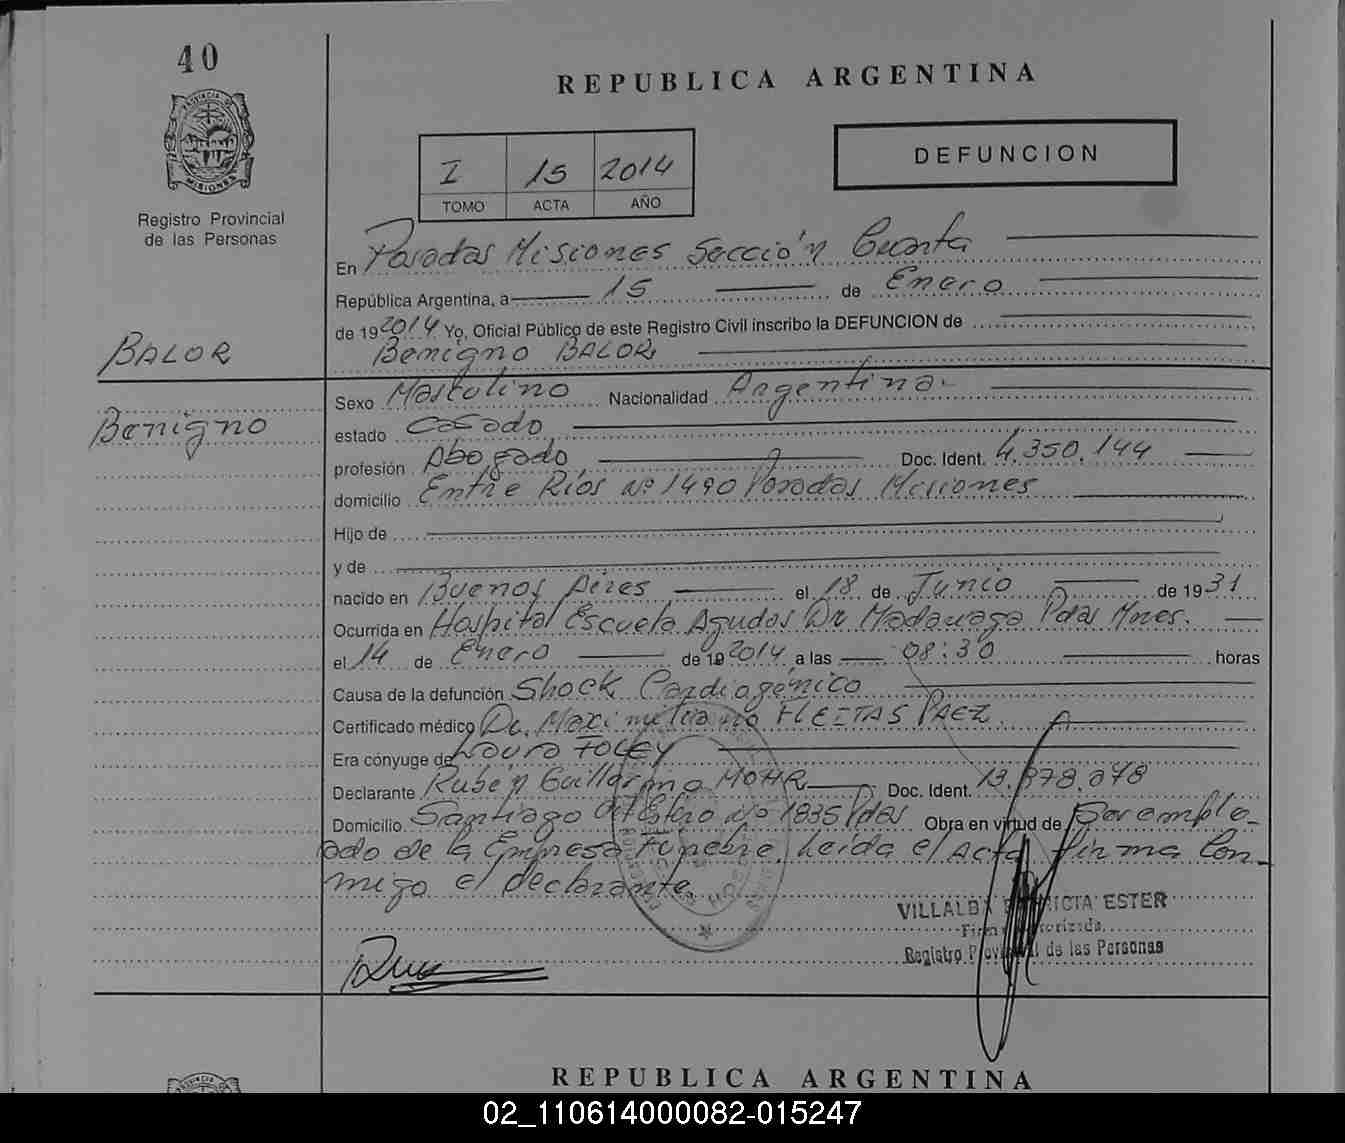 40
REPUBLICA ARGENTINA
I 15 2014
TOMO ACTA AÑO
DEFUNCION
Registro Provincial
de las Personas
En Posadas Misiones Sección Cuarta
República Argentina, a 15 de Enero
de 19 2014 Yo, Oficial Público de este Registro Civil inscribo la DEFUNCION de
BALOR
Benigno BALOR
Benigno
Sexo Masculino Nacionalidad Argentina.
estado Casado
profesión Abogado Doc. Ident. 4.350.144
domicilio Entre Rios Nº 1490 Posadas Misiones
Hijo de
y de
nacido en Buenos Aires el 18 de Junio de 1931
Ocurrida en Hospital Escuela Agudos Dr Madariaga Pdas Mnes.
el 14 de Enero de 19 2014 a las 08:30 horas
Causa de la defunción Shock Cardiogénico
Certificado médico Dr. Maximiliano FLEITAS PAEZ
Era cónyuge de Laura FOLEY
Declarante Ruben Guillermo MOHR Doc. Ident. 13.878.078
Domicilio Santiago del Estero Nº 1835 Pdas Obra en virtud de Ser emple-
ado de la Empresa Fúnebre. Leída el Acta firma Con-
migo el declarante.
VILLALBA PATRICIA ESTER
Firma Autorizada
Registro Provincial de las Personas
REPUBLICA ARGENTINA
02_110614000082-015247